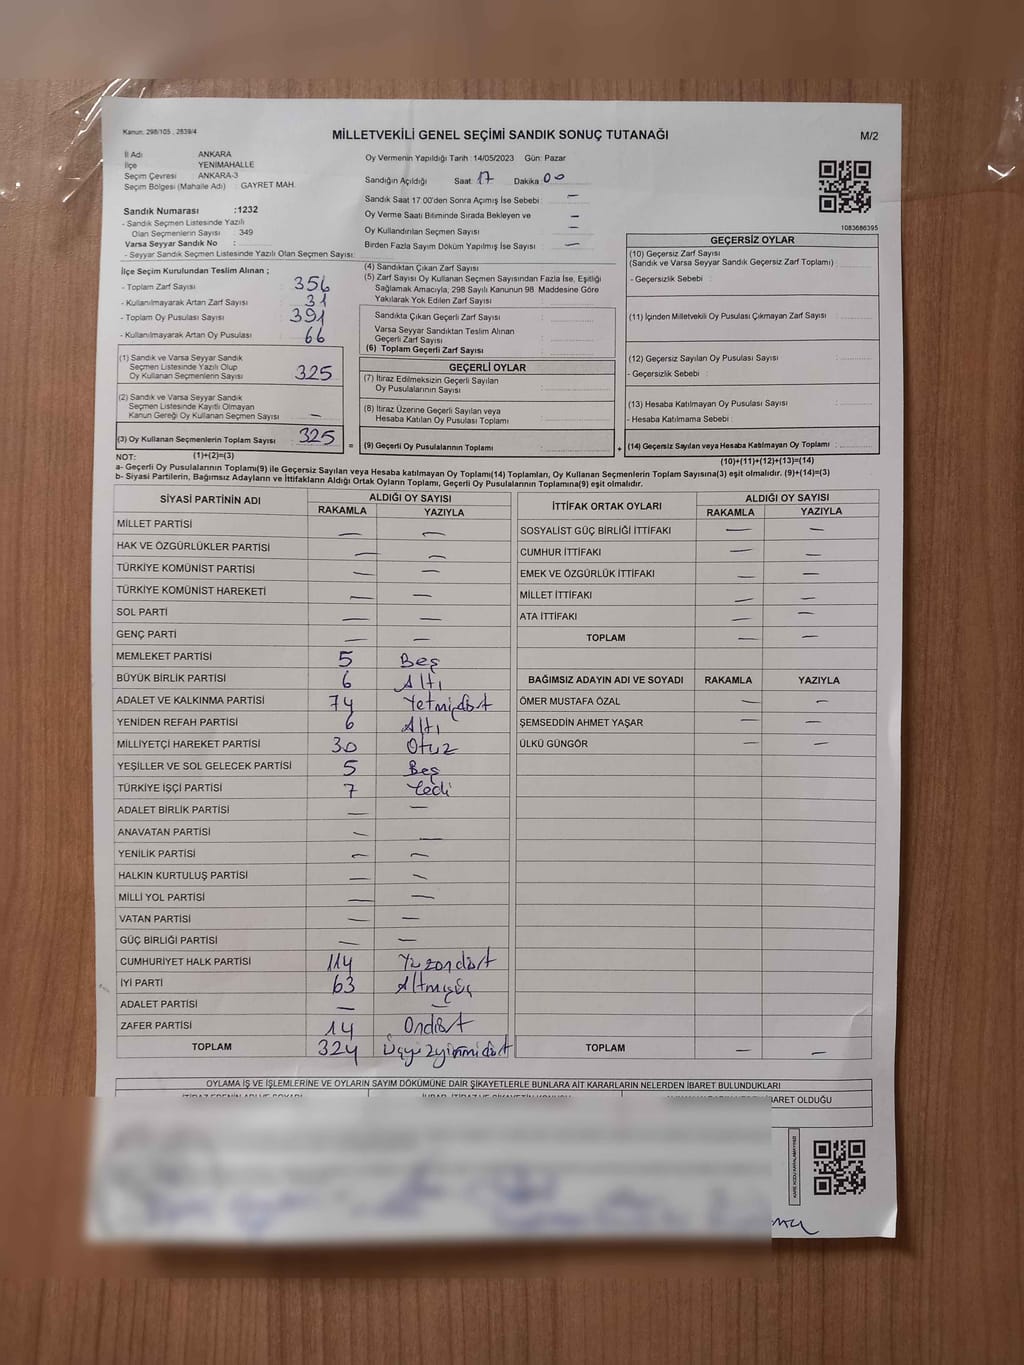 Kanun: 298/105 , 2839/4
MİLLETVEKİLİ GENEL SEÇİMİ SANDIK SONUÇ TUTANAĞI
M/2
İl Adı ANKARA
İlçe YENİMAHALLE
Seçim Çevresi : ANKARA-3
Seçim Bölgesi (Mahalle Adı) : GAYRET MAH.
Oy Vermenin Yapıldığı Tarih :14/05/2023 Gün: Pazar
Sandığın Açıldığı Saat: 17 Dakika: 00
Sandık Saat 17.00'den Sonra Açımış İse Sebebi : —
Oy Verme Saati Bitiminde Sırada Bekleyen ve
Oy Kullandırılan Seçmen Sayısı : —
Birden Fazla Sayım Döküm Yapılmış İse Sayısı : —
1083686395
Sandık Numarası :1232
- Sandık Seçmen Listesinde Yazılı
Olan Seçmenlerin Sayısı : 349
Varsa Seyyar Sandık No :
- Seyyar Sandık Seçmen Listesinde Yazılı Olan Seçmen Sayısı:
İlçe Seçim Kurulundan Teslim Alınan ;
- Toplam Zarf Sayısı : 356
- Kullanılmayarak Artan Zarf Sayısı : 31
- Toplam Oy Pusulası Sayısı : 391
- Kullanılmayarak Artan Oy Pusulası : 66
(1) Sandık ve Varsa Seyyar Sandık
Seçmen Listesinde Yazılı Olup
Oy Kullanan Seçmenlerin Sayısı : 325
(2) Sandık ve Varsa Seyyar Sandık
Seçmen Listesinde Kayıtlı Olmayan
Kanun Gereği Oy Kullanan Seçmen Sayısı : —
(3) Oy Kullanan Seçmenlerin Toplam Sayısı : 325
(1)+(2)=(3)
(4) Sandıktan Çıkan Zarf Sayısı :
(5) Zarf Sayısı Oy Kullanan Seçmen Sayısından Fazla İse, Eşitliği
Sağlamak Amacıyla, 298 Sayılı Kanunun 98 Maddesine Göre
Yakılarak Yok Edilen Zarf Sayısı :
Sandıkta Çıkan Geçerli Zarf Sayısı :
Varsa Seyyar Sandıktan Teslim Alınan
Geçerli Zarf Sayısı :
(6) Toplam Geçerli Zarf Sayısı :
GEÇERLİ OYLAR
(7) İtiraz Edilmeksizin Geçerli Sayılan
Oy Pusulalarının Sayısı :
(8) İtiraz Üzerine Geçerli Sayılan veya
Hesaba Katılan Oy Pusulası Toplamı :
= (9) Geçerli Oy Pusulalarının Toplamı :
GEÇERSİZ OYLAR
(10) Geçersiz Zarf Sayısı
(Sandık ve Varsa Seyyar Sandık Geçersiz Zarf Toplamı) :
- Geçersizlik Sebebi :
(11) İçinden Milletvekili Oy Pusulası Çıkmayan Zarf Sayısı :
(12) Geçersiz Sayılan Oy Pusulası Sayısı :
- Geçersizlik Sebebi :
(13) Hesaba Katılmayan Oy Pusulası Sayısı :
- Hesaba Katılmama Sebebi :
+ (14) Geçersiz Sayılan veya Hesaba Katılmayan Oy Toplamı :
(10)+(11)+(12)+(13)=(14)
NOT:
a- Geçerli Oy Pusulalarının Toplamı(9) ile Geçersiz Sayılan veya Hesaba katılmayan Oy Toplamı(14) Toplamları, Oy Kullanan Seçmenlerin Toplam Sayısına(3) eşit olmalıdır. (9)+(14)=(3)
b- Siyasi Partilerin, Bağımsız Adayların ve İttifakların Aldığı Ortak Oyların Toplamı, Geçerli Oy Pusulalarının Toplamına(9) eşit olmalıdır.
SİYASİ PARTİNİN ADI ALDIĞI OY SAYISI
RAKAMLA YAZIYLA
MİLLET PARTİSİ — —
HAK VE ÖZGÜRLÜKLER PARTİSİ — —
TÜRKİYE KOMÜNİST PARTİSİ — —
TÜRKİYE KOMÜNİST HAREKETİ — —
SOL PARTİ — —
GENÇ PARTİ — —
MEMLEKET PARTİSİ 5 Beş
BÜYÜK BİRLİK PARTİSİ 6 Altı
ADALET VE KALKINMA PARTİSİ 74 Yetmişdört
YENİDEN REFAH PARTİSİ 6 Altı
MİLLİYETÇİ HAREKET PARTİSİ 30 Otuz
YEŞİLLER VE SOL GELECEK PARTİSİ 5 Beş
TÜRKİYE İŞÇİ PARTİSİ 7 Yedi
ADALET BİRLİK PARTİSİ — —
ANAVATAN PARTİSİ — —
YENİLİK PARTİSİ — —
HALKIN KURTULUŞ PARTİSİ — —
MİLLİ YOL PARTİSİ — —
VATAN PARTİSİ — —
GÜÇ BİRLİĞİ PARTİSİ — —
CUMHURİYET HALK PARTİSİ 114 Yüzondört
İYİ PARTİ 63 Altmışüç
ADALET PARTİSİ — —
ZAFER PARTİSİ 14 Ondört
TOPLAM 324 Üçyüzyirmidört
İTTİFAK ORTAK OYLARI ALDIĞI OY SAYISI
RAKAMLA YAZIYLA
SOSYALİST GÜÇ BİRLİĞİ İTTİFAKI — —
CUMHUR İTTİFAKI — —
EMEK VE ÖZGÜRLÜK İTTİFAKI — —
MİLLET İTTİFAKI — —
ATA İTTİFAKI — —
TOPLAM — —
BAĞIMSIZ ADAYIN ADI VE SOYADI RAKAMLA YAZIYLA
ÖMER MUSTAFA ÖZAL — —
ŞEMSEDDİN AHMET YAŞAR — —
ÜLKÜ GÜNGÖR — —
TOPLAM — —
OYLAMA İŞ VE İŞLEMLERİNE VE OYLARIN SAYIM DÖKÜMÜNE DAİR ŞİKAYETLERLE BUNLARA AİT KARARLARIN NELERDEN İBARET BULUNDUKLARI
İBARET OLDUĞU
KARE KODU KARALAMAYINIZ!